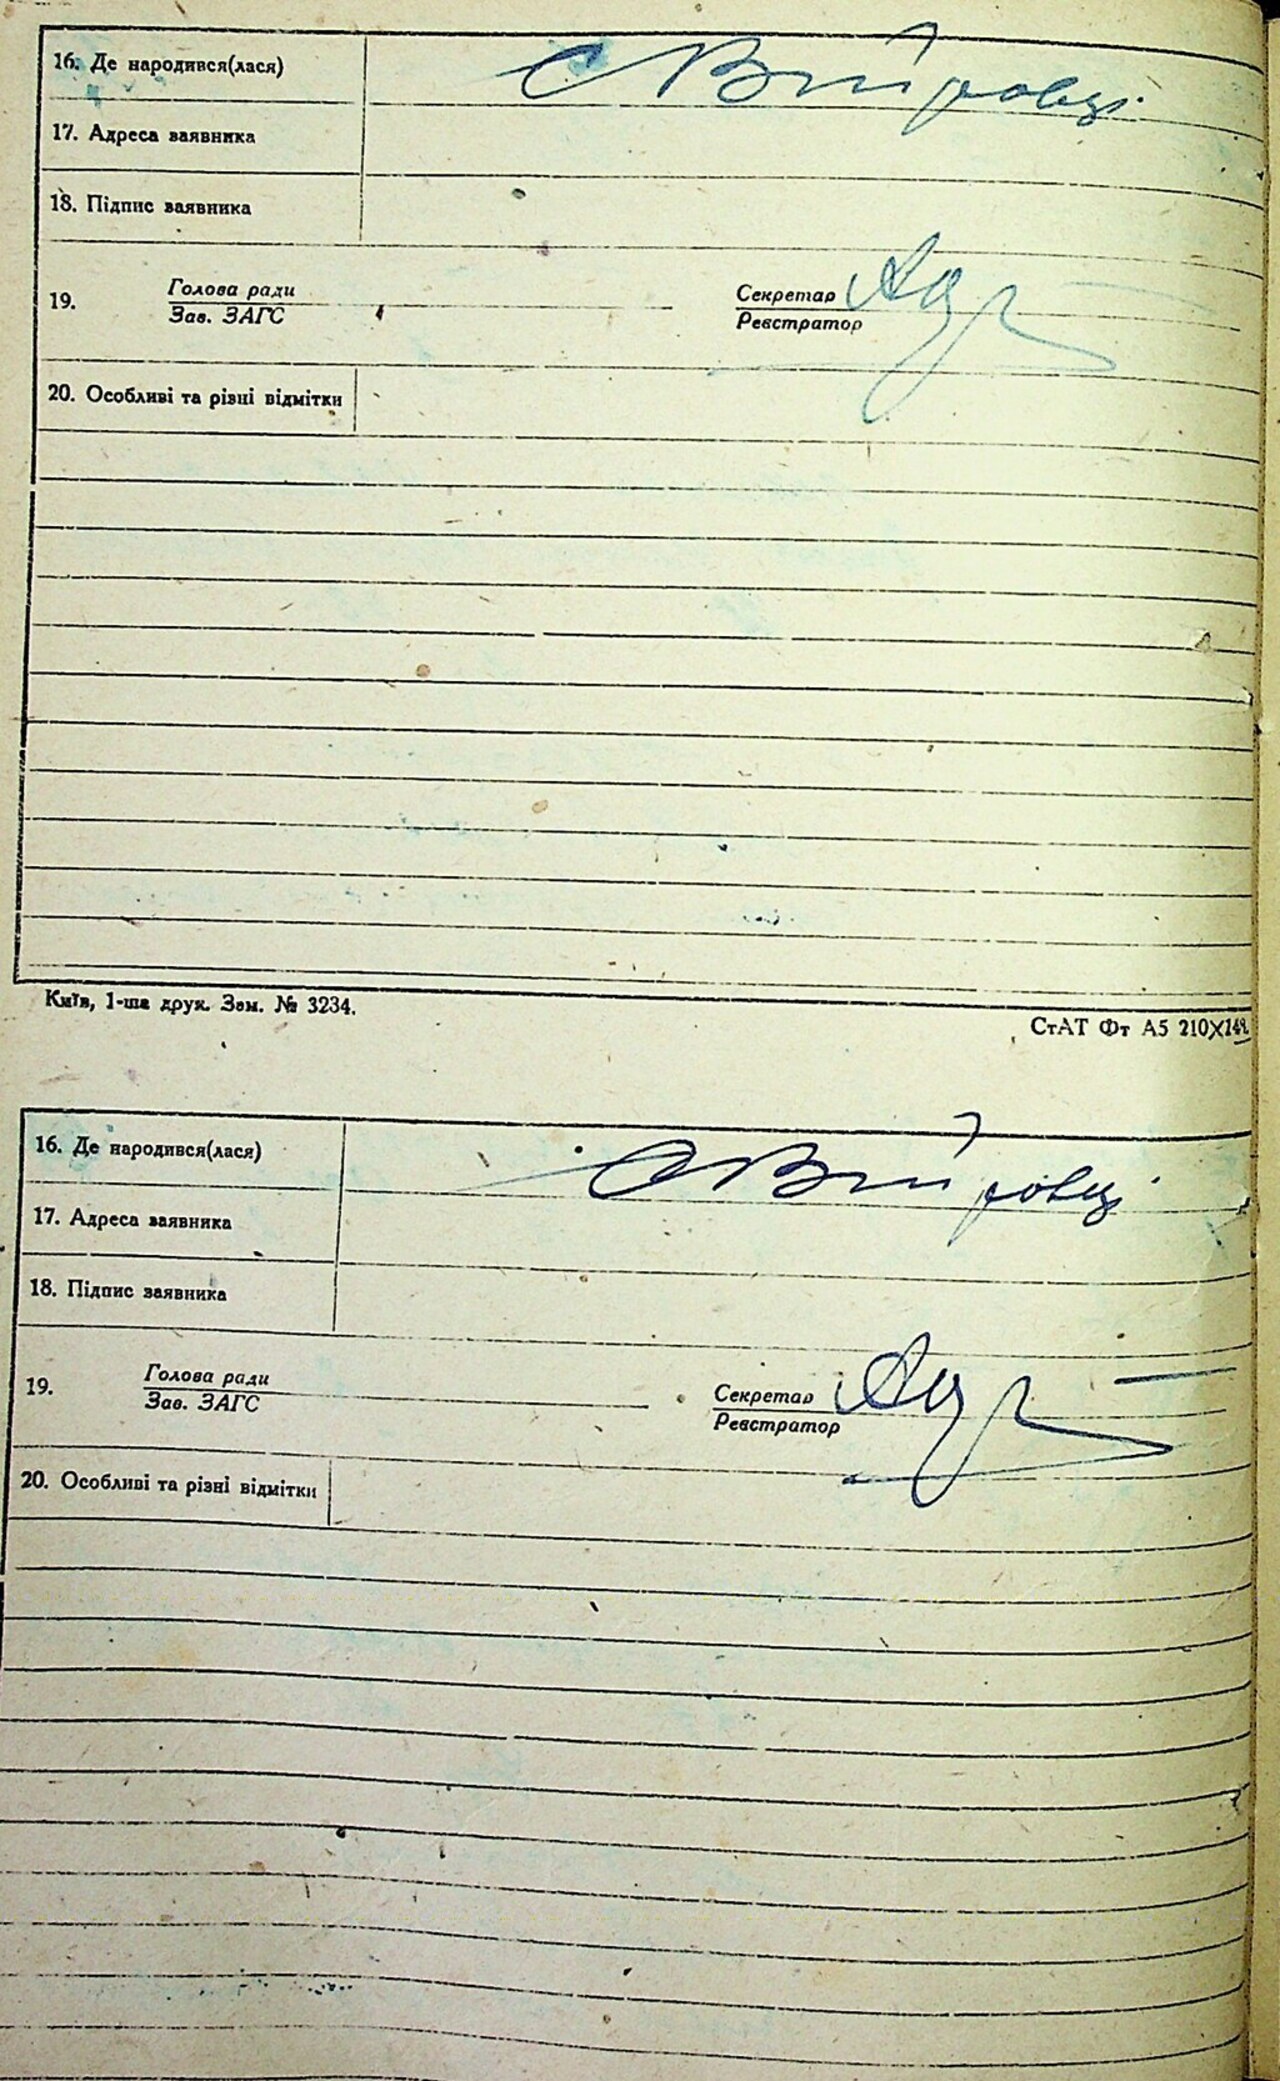 16. Де народився(лася) с Війтівці
17. Адреса заявника
18. Підпис заявника
19. Голова ради Секретар
Зав. ЗАГС Реєстратор
20. Особливі та різні відмітки
Київ, 1-ша друк. Зам. № 3234.
СтАТ Фт А5 210X148
16. Де народився(лася) с
17. Адреса заявника
18. Підпис заявника
19. Голова ради Секретар
Зав. ЗАГС Реєстратор
20. Особливі та різні відмітки